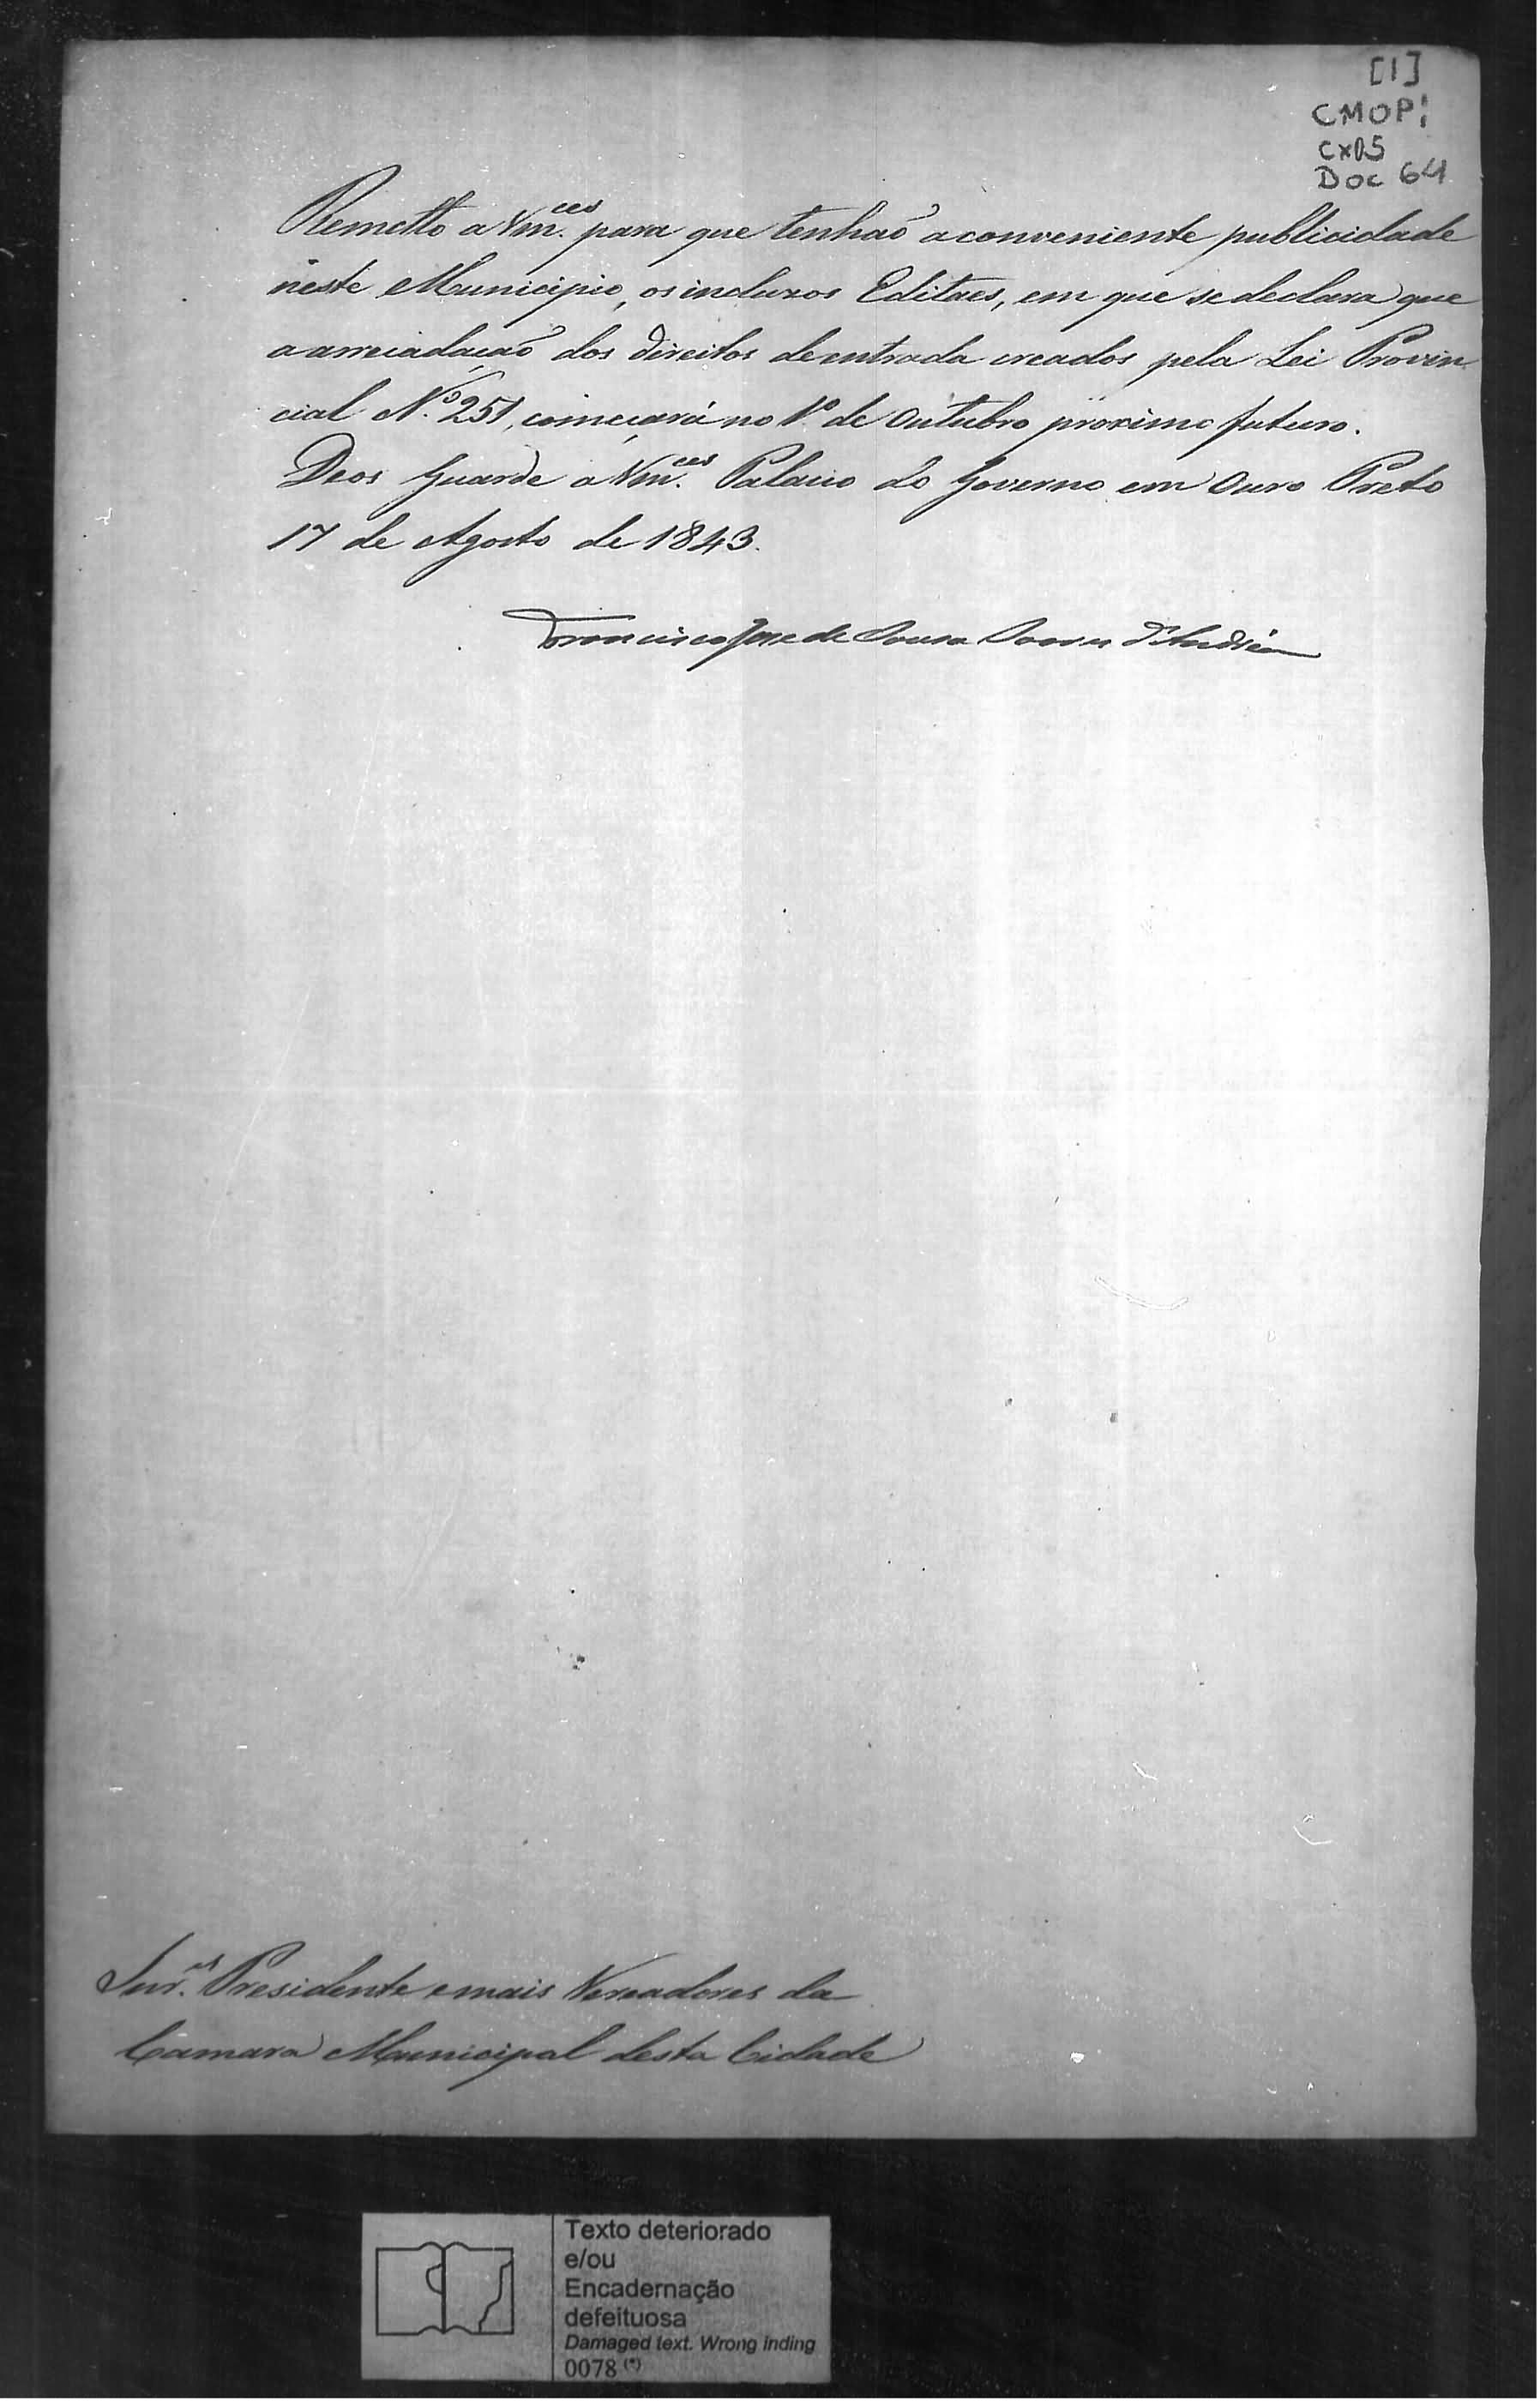 [1]
CMOP:
CX05
Doc 64
Remetto a Vm.ces para que tenhaõ a conveniente publicidade
neste Municipio, os incluzos Editaes, em que se declara que
a arreiadaçaõ dos direitos de entrada creados pela Lei Provin-
cial N.º 251, começará no 1º de Outubro proximo futuro.
Deos Guarde a Vm.ces Palacio do Governo em Ouro Preto
17 de Agosto de 1843.
Francisco Jose de Souza Soares d'Andréa
Snr.es Presidente e mais Vereadores da
Camara Municipal desta Cidade
Texto deteriorado
e/ou
Encadernação
defeituosa
Damaged text. Wrong inding
0078 (*)